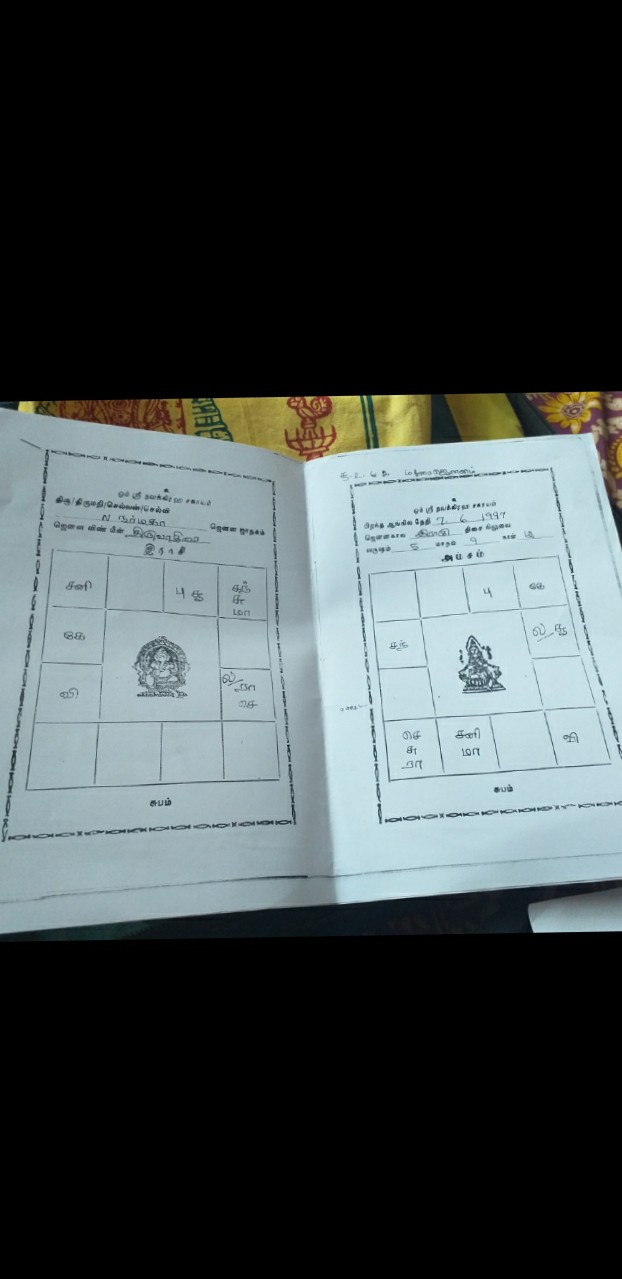 ஓம் ஸ்ரீ நவக்கிரஹ சகாயம்
திரு/திருமதி/செல்வன்/செல்வி
N நர்மதா ஜெனன ஜாதகம்
ஜெனன விண் மீன் திருவாதிரை
இராசி
சனி
பு சூ
சந்
சு
மா
கே
வி
ல/
ரா
செ
சுபம்
ஓம் ஸ்ரீ நவக்கிரஹ சகாயம்
பிறந்த ஆங்கில தேதி 7.6.1997
ஜெனனகால திசை நிலுவை
வருஷம் 5 மாதம் 9 நாள்
அம்சம்
பு
கே
சந்
ல/ சூ
செ
சு
ரா
சனி
மா
வி
சுபம்